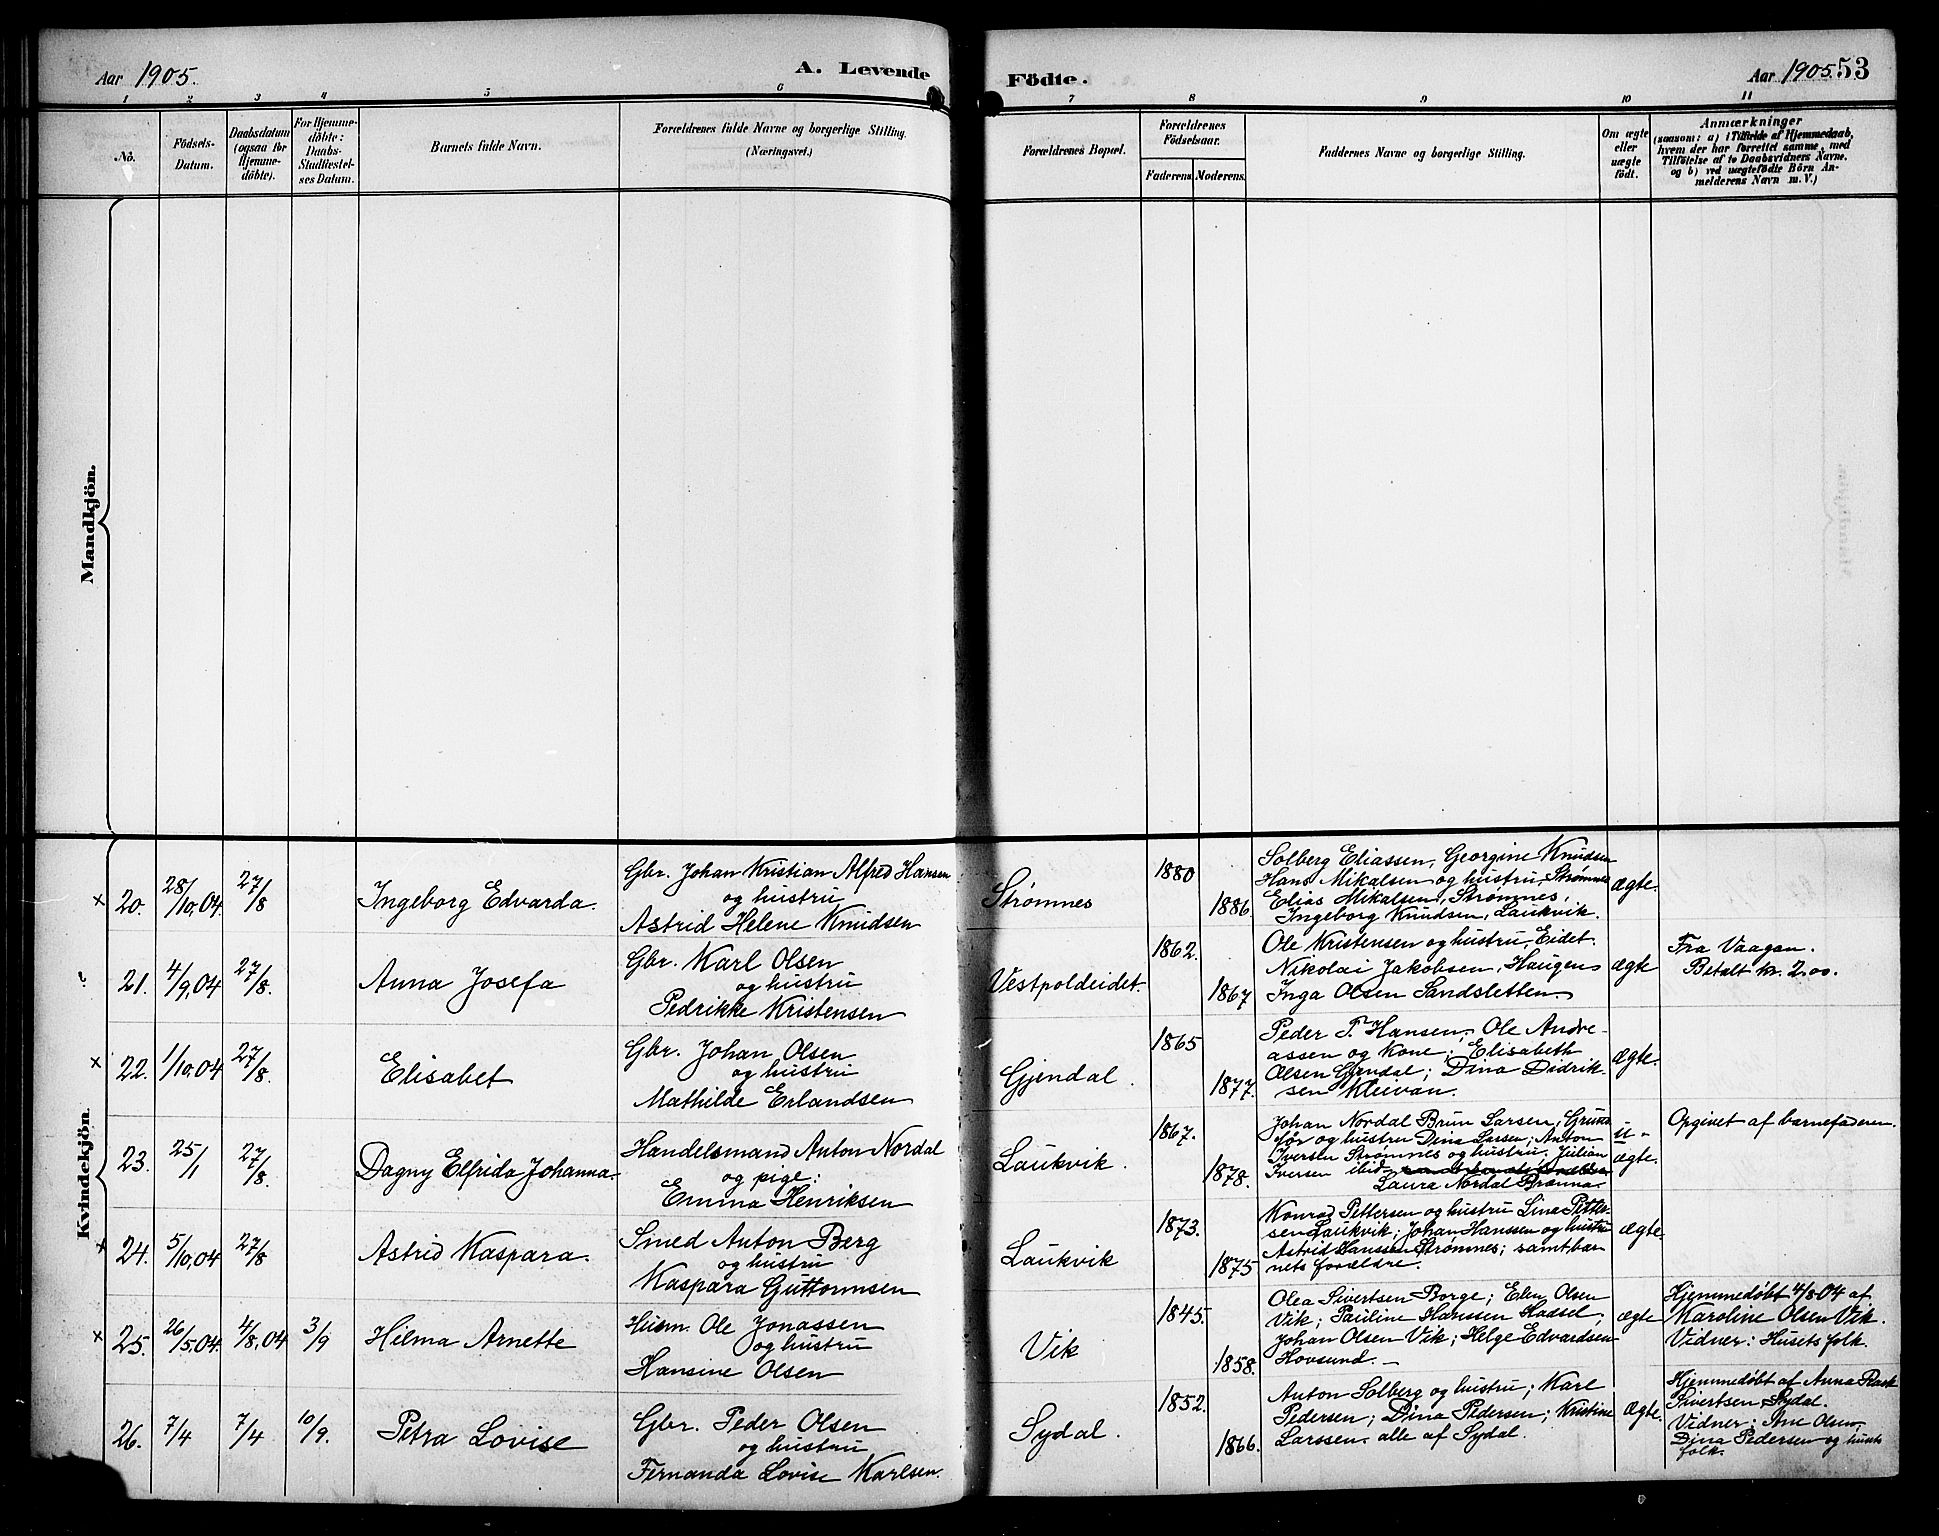 Aar 1905.
A. Levende
Födte.
Aar 1905. 53
1 2 3 4 5 6 7 8 9 10 11
No.
Födsels-
Datum.
Daabsdatum
(ogsaa for
Hjemme-
döbte).
For Hjemme-
döbte:
Daabs-
Stadfæstel-
ses Datum.
Barnets fulde Navn.
Forældrenes fulde Navne og borgerlige Stilling.
(Næringsvei.)
Forældrenes Bopæl.
Forældrenes
Födselsaar.
Faderens. Moderens.
Faddernes Navne og borgerlige Stilling.
Om ægte
eller
uægte
födt.
Anmærkninger
(saasom: a) i Tilfælde af Hjemmedaab,
hvem der har forrettet samme, med
Tilföielse af to Daabsvidners Navne,
og b) ved uægtefödte Börn An-
melderens Navn m. V.)
Mandkjön.
Kvindekjön.
× 20. 28/10,04. 27/8 Ingeborg Edvarda.
Gbr. Johan Kristian Alfred Hansen
og hustru
Astrid Helene Knudsen
Strømnes
1880
1886.
Solberg Eliassen, Georgine Knudsen
Hans Mikalsen og hustru Strømnes
Elias Mikalsen, Strømnes,
Ingeborg Knudsen, Laukvik.
ægte.
21. 4/9,04 27/8. Anna Josefa
Gbr. Karl Olsen
og hustru
Pedrikke Kristensen
Vestpoldeidet.
1862.
1867
Ole Kristensen og hustru, Eidet.
Nikolai Jakobsen, Haugen
Inga Olsen Sandsletten.
ægte
Fra Vaagan.
Betalt kr. 2,00.
× 22. 1/10,04 27/8. Elisabet
Gbr. Johan Olsen
og hustru
Mathilde Erlandsen
Gjendal.
1865
1877.
Peder T. Hansen; Ole Andre-
assen og Kone; Elisabeth
Olsen Gjendal; Dina Didrik-
sen Kleivan.
ægte.
23. 25/1 27/8. Dagny Elfrida Johanna.
Handelsmand Anton Nordal
og pige:
Emma Henriksen
Laukvik.
1867.
1878.
Johan Nordal Brun Larsen, Grund-
før og hustru Dina Larsen; Anton
Iversen Strømnes og hustru. Julian
Iversen ibid.
Laura Nordal Brenna.
u-
ægte.
Opgivet af barnefaderen.
× 24. 5/10,04 27/8 Astrid Kaspara.
Smed Anton Berg
og hustru
Kaspara Guttormsen
Laukvik
1873.
1875
Konrad Pettersen og hustru Lina Petter-
sen Laukvik; Johan Hanssen og hustru
Astrid Hanssen Strømnes; samt bar-
nets forældre.
ægte.
× 25. 26/5.04. 4/8,04 3/9 Hilma Arnette
Husm. Ole Jonassen
og hustru
Hansine Olsen
Vik
1845.
1858.
Olea Sivertsen Borge; Elen Olsen
Vik; Pauline Hanssen Hadsel,
Johan Olsen Vik; Helge Edvardsen
Hovsund.
ægte
Hjemmedøbt 4/8 04 af
Karoline Olsen Vik.
Vidner: Husets folk.
26. 7/4 7/4 10/9. Petra Lovise
Gbr. Peder Olsen
og hustru
Fernanda Lovise Karlsen.
Sydal.
1852.
1866.
Anton Solberg og hustru; Karl
Pedersen; Dina Pedersen; Kristine
Larssen. alle af Sydal.
ægte.
Hjemmedøbt af Anna Rask
Sivertsen Sydal.
Vidner: Ane Olsen,
Dina Pedersen og husets
folk.